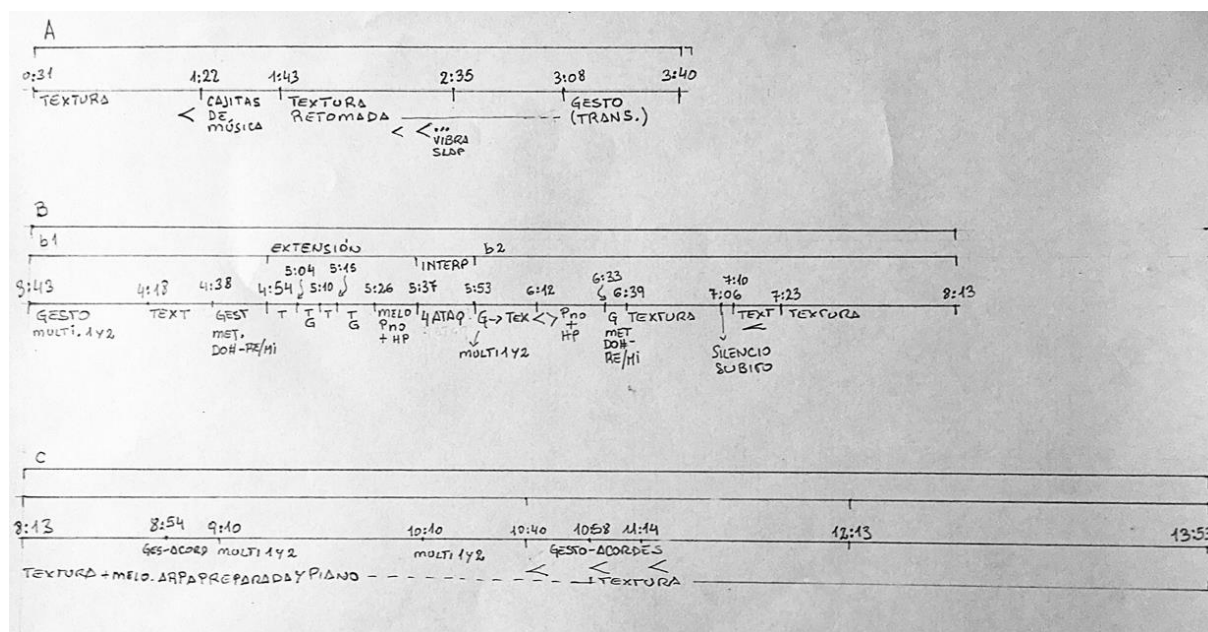 A
0:31 1:22 1:43 2:35 3:08 3:40
TEXTURA
< CAJITAS DE MÚSICA
TEXTURA RETOMADA
< <... VIBRA SLAP
GESTO (TRANS.)
B
b1 EXTENSIÓN b2
INTERP
3:43 4:18 4:38 4:54 5:04 5:10 5:15 5:26 5:37 5:53 6:12 6:33 6:39 7:06 7:10 7:23 8:13
GESTO MULTI. 1y2
TEXT
GEST MET. DO#-RE/MI
T
T G
T
T G
MELO Pno + HP
4 ATAQ
G→TEX <>
MULTI 1y2
Pno + HP
G MET DO#-RE/MI
TEXTURA
SILENCIO SUBITO
TEXT <
TEXTURA
C
8:13 8:54 9:10 10:10 10:40 10:58 11:14 12:13 13:53
GES-ACORD MULTI 1y2 MULTI 1y2 GESTO-ACORDES
< < <
TEXTURA + MELO. ARPA PREPARADA Y PIANO - - - TEXTURA